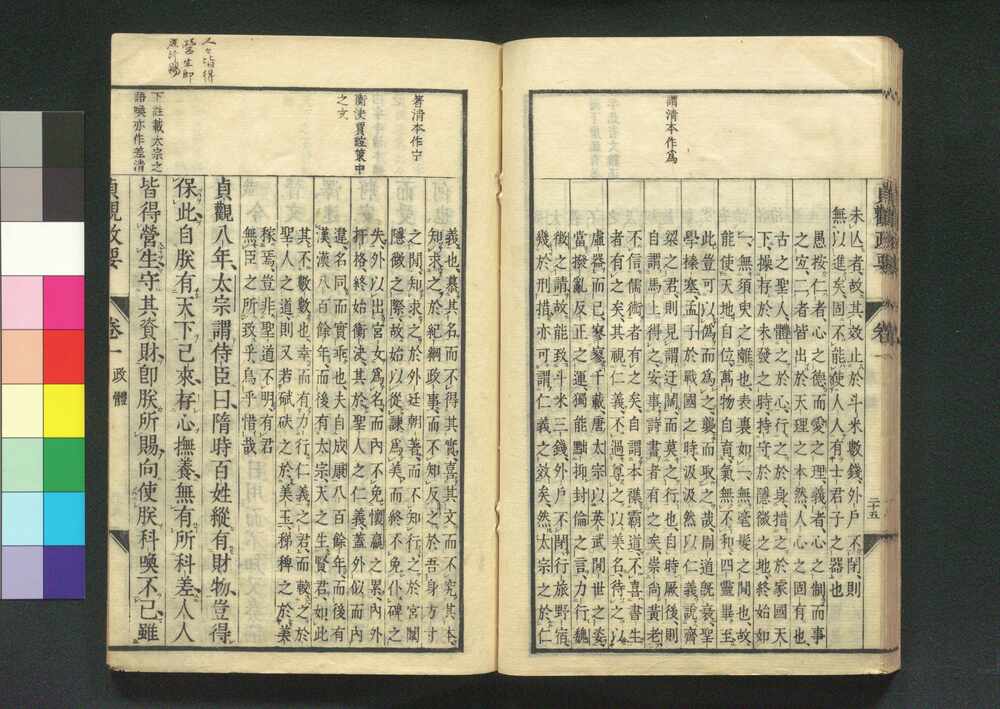 謂淸本作爲
貞觀政要 卷一
二十五
未仏者故其效止於斗米數錢外戶不閉則
無以進矣固不能使人人有士君子之器也
愚按仁者心之德而愛之理義者心之制而事
之宜二者皆出於天理之本然人心之固有也
古之聖人體之於心行之於身措之於家國天
下操存於未發之時持守於隱微之地終始如
一無須臾之離也表裏如一無毫髮之間也故
能使天地自位萬物自育氣無不和四靈畢至
此豈可以僞而爲之襲而取之哉周道旣衰聖
學榛塞孟子於戰國之時汲汲然以仁義說齊
梁之君則見謂迂闊而莫之行也自時厥後則
自謂馬上得之安事詩書者有之矣崇尚黃老
不信儒術者有之矣自謂本襍霸道不喜書生
者有之矣其視仁義不過尊之以美名待之以
虛器而已寥寥千載唐太宗以英武間世之姿
當撥亂反正之運獨能黜抑封倫之言力行魏
徵之請故能致斗米三錢外戶不閉行旅野宿
幾於刑措亦可謂仁義之效矣然太宗之於仁
著淸本作宁
衡决賈誼策中
之文
下註載太宗之
語喚亦作差淸
人々皆得
營生即
朕所賜
義也慕其名而不得其實喜其文而不究其本
知求之於紀綱政事而不知反之於吾身方寸
之間知求之於外廷朝著而不知行之於宮閫
隱微之際故始以從諫爲美而終不免仆碑之
失外以出宮女爲名而內不免懷嬴之累內外
扞格終始衡决其於聖人之仁義蓋外似而內
違名同而實乖也夫自成康八百餘年而後有
漢漢八百餘年而後有太宗天之生賢君如此
其不數數也幸而有力行仁義之君而較之於
聖人之道則又若碔砆之於美玉稊稗之於美
稼焉豈非聖道不明有君
無臣之所致乎烏乎惜哉
貞觀八年太宗謂侍臣曰隋時百姓縱有財物豈得
保此自朕有天下已來存心撫養無有所科差人人
皆得營生守其資財卽朕所賜向使朕科喚不已雖
貞觀政要 卷一 政體